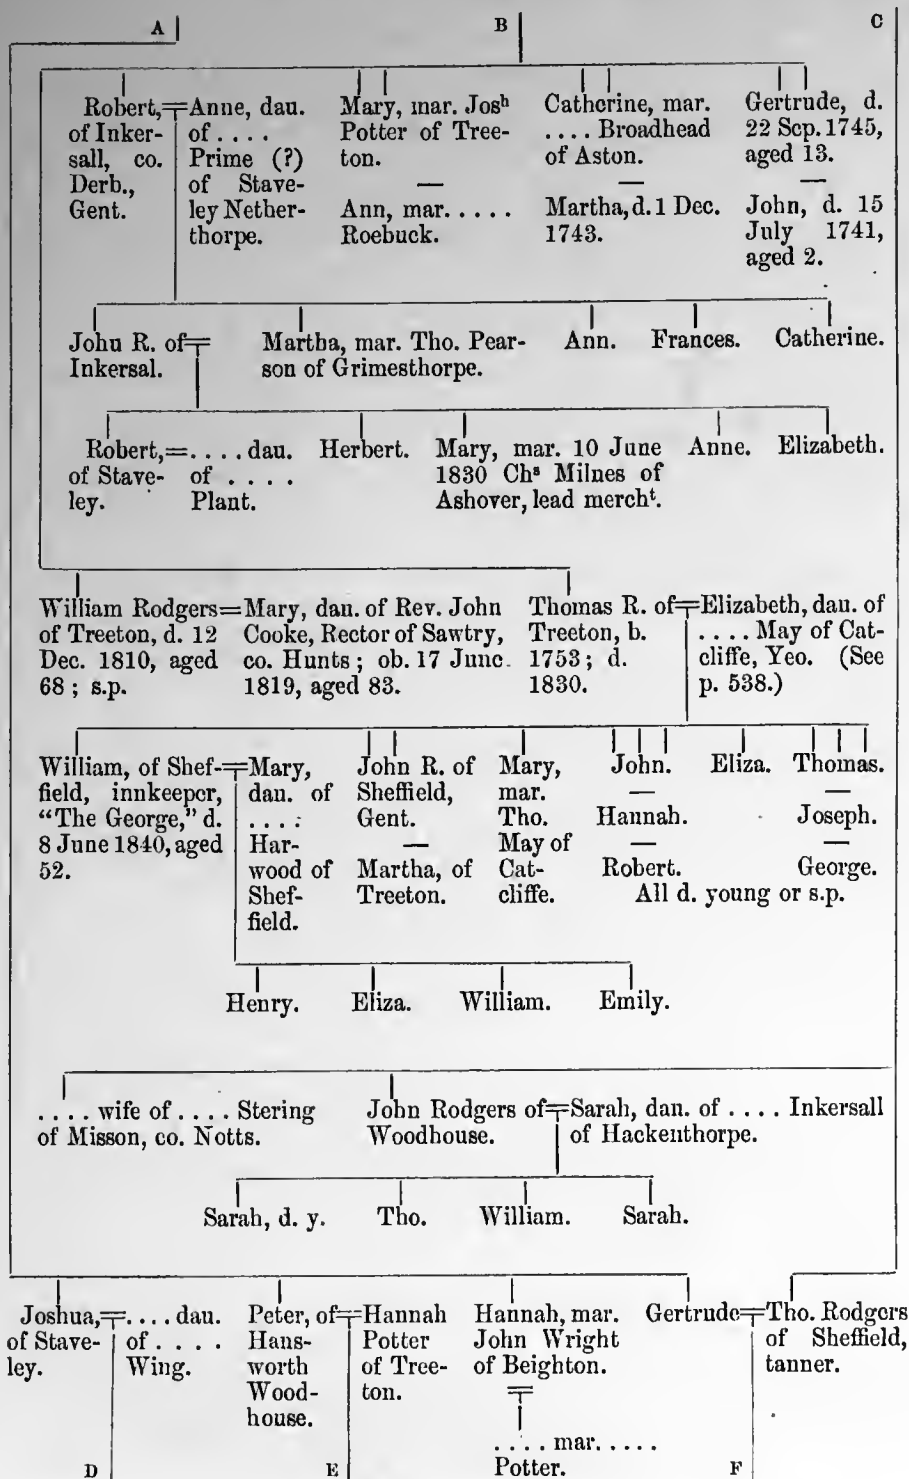 A B C
Robert, of Inkersall, co. Derb., Gent.
Anne, dau. of .... Prime (?) of Staveley Netherthorpe.
Mary, mar. Josʰ Potter of Treeton.
—
Ann, mar. .... Roebuck.
Catherine, mar. .... Broadhead of Aston.
—
Martha, d. 1 Dec. 1743.
Gertrude, d. 22 Sep. 1745, aged 13.
—
John, d. 15 July 1741, aged 2.
John R. of Inkersal.
Martha, mar. Tho. Pearson of Grimesthorpe.
Ann.
Frances.
Catherine.
Robert, of Staveley. = .... dau. of .... Plant.
Herbert.
Mary, mar. 10 June 1830 Chˢ Milnes of Ashover, lead merchᵗ.
Anne.
Elizabeth.
William Rodgers of Treeton, d. 12 Dec. 1810, aged 68 ; s.p.
= Mary, dau. of Rev. John Cooke, Rector of Sawtry, co. Hunts ; ob. 17 June 1819, aged 83.
Thomas R. of Treeton, b. 1753 ; d. 1830.
Elizabeth, dau. of .... May of Catcliffe, Yeo. (See p. 538.)
William, of Sheffield, innkeeper, “The George,” d. 8 June 1840, aged 52.
Mary, dau. of .... Harwood of Sheffield.
John R. of Sheffield, Gent.
—
Martha, of Treeton.
Mary, mar. Tho. May of Catcliffe.
John.
—
Hannah.
—
Robert.
Eliza.
Thomas.
—
Joseph.
—
George.
All d. young or s.p.
Henry. Eliza. William. Emily.
.... wife of .... Stering of Misson, co. Notts.
John Rodgers of Woodhouse.
Sarah, dau. of .... Inkersall of Hackenthorpe.
Sarah, d. y. Tho. William. Sarah.
Joshua, of Staveley.
.... dau. of .... Wing.
Peter, of Hansworth Woodhouse.
Hannah Potter of Treeton.
Hannah, mar. John Wright of Beighton.
.... mar. .... Potter.
Gertrude
Tho. Rodgers of Sheffield, tanner.
D E F